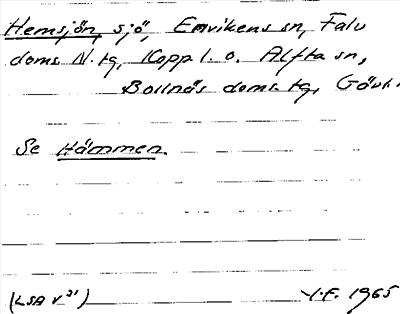 Hemsjön, sjö, Envikens sn, Falu
doms. N. tg, Kopp l. o. Alfta sn,
Bollnäs doms. tg, Gävl.
Se Hämmen.
(LSA V 31) Y.F. 1965